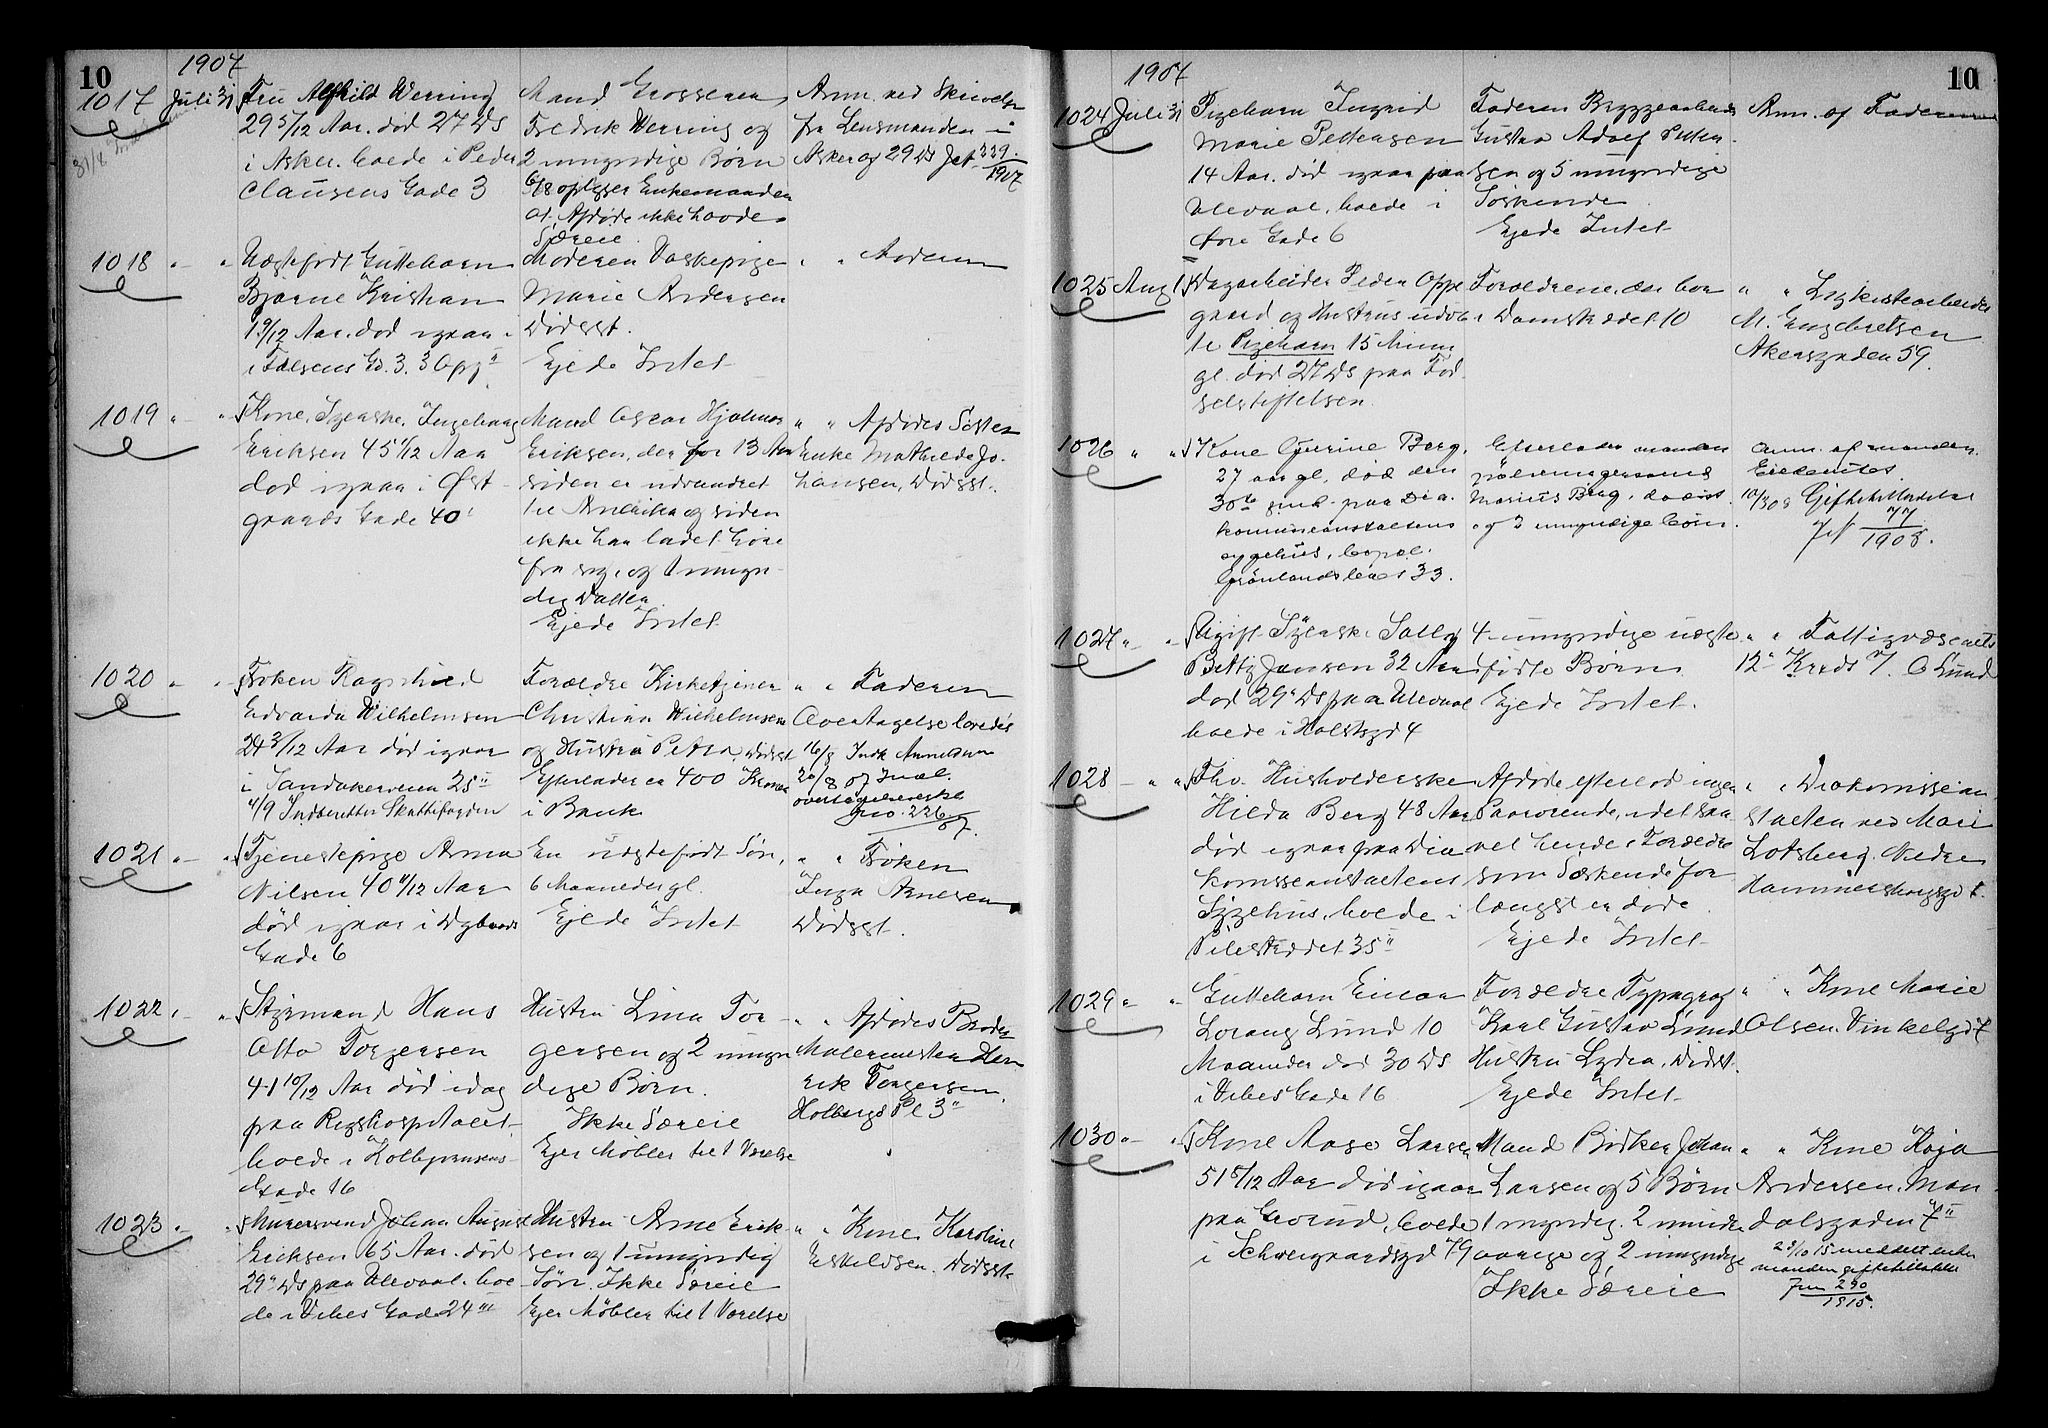 10
1907
1017 Juli 31 Fru Alfhild Werring
29 5/12 Aar. død 27 Ds
i Asker. boede i Peder
Clausens Gade 3
Mand Grosserer
Fredrik Werring og
2 umyndige Børn
6/8 oplyser Enkemanden
at Afdøde ikke havde
Særeie.
Anm. ved Skrivelse
fra Lensmanden i
Asker og 29 Ds Jnl 339
1907
1018 " " Uægtefødt Guttebarn
Bjarne Kristian
1 9/12 Aar. død igaar
i Falsens Gd. 3. 3 Opg
Moderen Vaskepige
Marie Andersen
Dødsst.
Ejede Intet
" " Moderen
1019 " " Kone, Svenske, Ingeborg
Eriksen 45 1/12 Aar
død igaar i Øst-
gaards Gade 40
Mand Oscar Hjalmar
Eriksen, der for 13 Aar
siden er udvandret
til Amerika og siden
ikke har ladet høre
fra sig, og 1 umyn-
dig Datter.
Ejede Intet
" " Afdødes Søster
Enke Mathilde Jo-
hansen, Dødsst.
1020 " " Frøken Ragnhild
Edvarda Wilhelmsen
24 3/12 Aar død igaar
i Sandakerveien 25 II
4/9 Indberetter Skattefogden
Forældre Kirketjener
Christian Wilhelmsen
og Hustru Petra, Dødsst
Efterlader ca 400 Kroner
i Bank
" " Faderen
Overtagelse lovedes
16/8 Indk Anmelderen
20/8 og Indl.
overtagelseserkl
gno. 226/07.
1021 " " Tjenestepige Anna
Nilsen 40 11/12 Aar
død igaar i Dybvads
Gade 6
En uægtefødt Søn,
6 Maaneder gl.
Ejede Intet
" " Frøken
Inga Arnesen
Dødsst.
1022 " " Styrmand Hans
Otto Torgersen
41 10/12 Aar død idag
paa Rigshospitalet,
boede i Kolbjørnsens
Gade 16
Hustru Lina Tor-
gersen og 2 umyn
dige Børn.
Ikke Særeie
Ejer Møbler til 1 Værelse
" " Afdødes Broder
Malermester Hen
rik Torgersen,
Holbergs Pl 3 II
1023 " " Murersvend Johan August
Eriksen 65 Aar. død
29 Ds paa Ullevaal. boe
de i Vibes Gade 24 III
Hustru Arne Erik-
sen og 1 umyndig
Søn. Ikke Særeie
Ejer Møbler til 1 Værelse
" " Kone Karoline
Eskildsen. Dødsst.
10
1907
1024 Juli 31 Pigebarn Ingrid
Marie Pettersen
14 Aar. død igaar paa
Ullevaal, boede i
Øvre Gade 6
Faderen Bryggearbeider
Gustav Adolf Petter-
sen og 5 umyndige
Søskende
Ejede Intet
Anm. af Faderen
1025 Aug 1 Dagarbeider Peder Oppe
gaard og Hustrus udøb
te Pigebarn 15 Minu
gl. død 27 Ds paa Fød
selstiftelsen.
Forældrene, der bor
i Damstrædet 10
" " Ligkistearbeider
M. Engebretsen
Akersgaden 59.
1026 " " Kone Gurine Berg,
27 aar gl, død den
30te juli paa Dia-
konisseanstaltens
sygehus, bopæl:
Grønlandsleret 33.
Efterlader manden
Marius Berg, dødsst
og 2 umyndige børn.
Anm. af manden.
10/3 08 Giftetilladelse
Jnl 77
1908.
1027 " " Ugift Svenske Sally
Betty Jansen 32 Aar
død 29 Ds paa Ullevaal
boede i Holstsgd 4
4 umyndige uægte
fødte Børn
Ejede Intet.
" " Fattigvæsenets
12 Kreds v/ O Lund
1028 " " Fhv. Husholderske
Hilda Berg 48 Aar
død igaar paa Dia
konisseanstaltens
Sygehus. boede i
Pilestrædet 35 II
Afdøde efterlod ingen
Paarørende, idet saa
vel hendes Forældre
som Søskende for
længst er døde.
Ejede Intet
" " Diakonissean-
stalten ved Mari
Lotsberg. Nedre
Hammersborgsgd
1029 " " Guttebarn Einar
Lorang Lund 10
Maaneder død 30 Ds
i Vibes Gade 16
Forældre Typograf
Karl Gustav Lund
Hustru Lydia, Dødsst.
Ejede Intet
" " Kone Marie
Olsen. Vinkelgd 7
1030 " " Kone Aase Larsen
51 5/12 Aar død igaar
paa Grorud, boede
i Schweigaardsgd 79
Mand Bødker Johan
Larsen og 5 Børn
1 myndig. 2 minder
aarige og 2 umyndige
Ikke Særeie
" " Kone Kaja
Andersen. Man-
dalsgaden 7 II
23/10 15 meddelt enke
manden giftetilladelse
Jnr 290
1915.